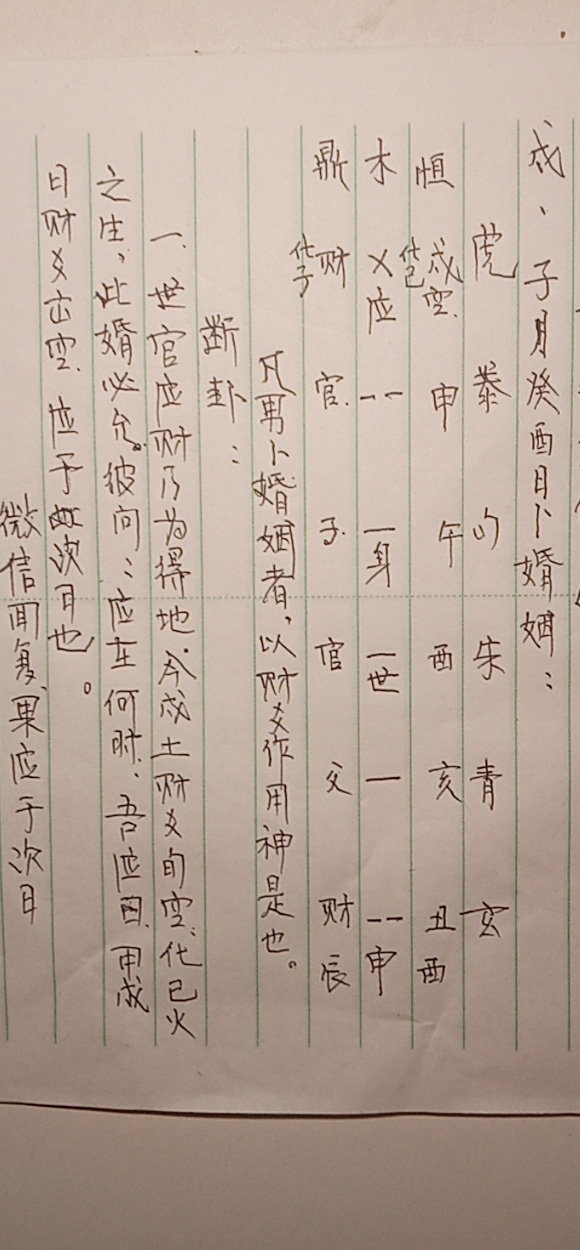 戌、子月癸酉日卜婚姻：
虎 蛰 勾 朱 青 玄
恒 戌空化巳 申 午 酉 亥 丑酉
木 ㄨ应 -- 一身 一世 一 --申
鼎 财化子 官 子 官 父 财辰
凡男卜婚姻者，以财爻作用神是也。
断卦：
一、世官应财乃为得地，今戌土财爻旬空，化巳火
之生，此婚必允。彼问：应在何时，吾应曰，甲戌
日财爻出空，应于次日也。
微信回复，果应于次日